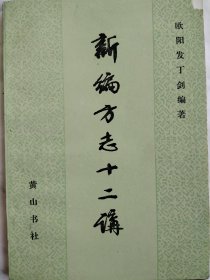 欧阳发丁剑编著
新编方志十二講
黄山书社